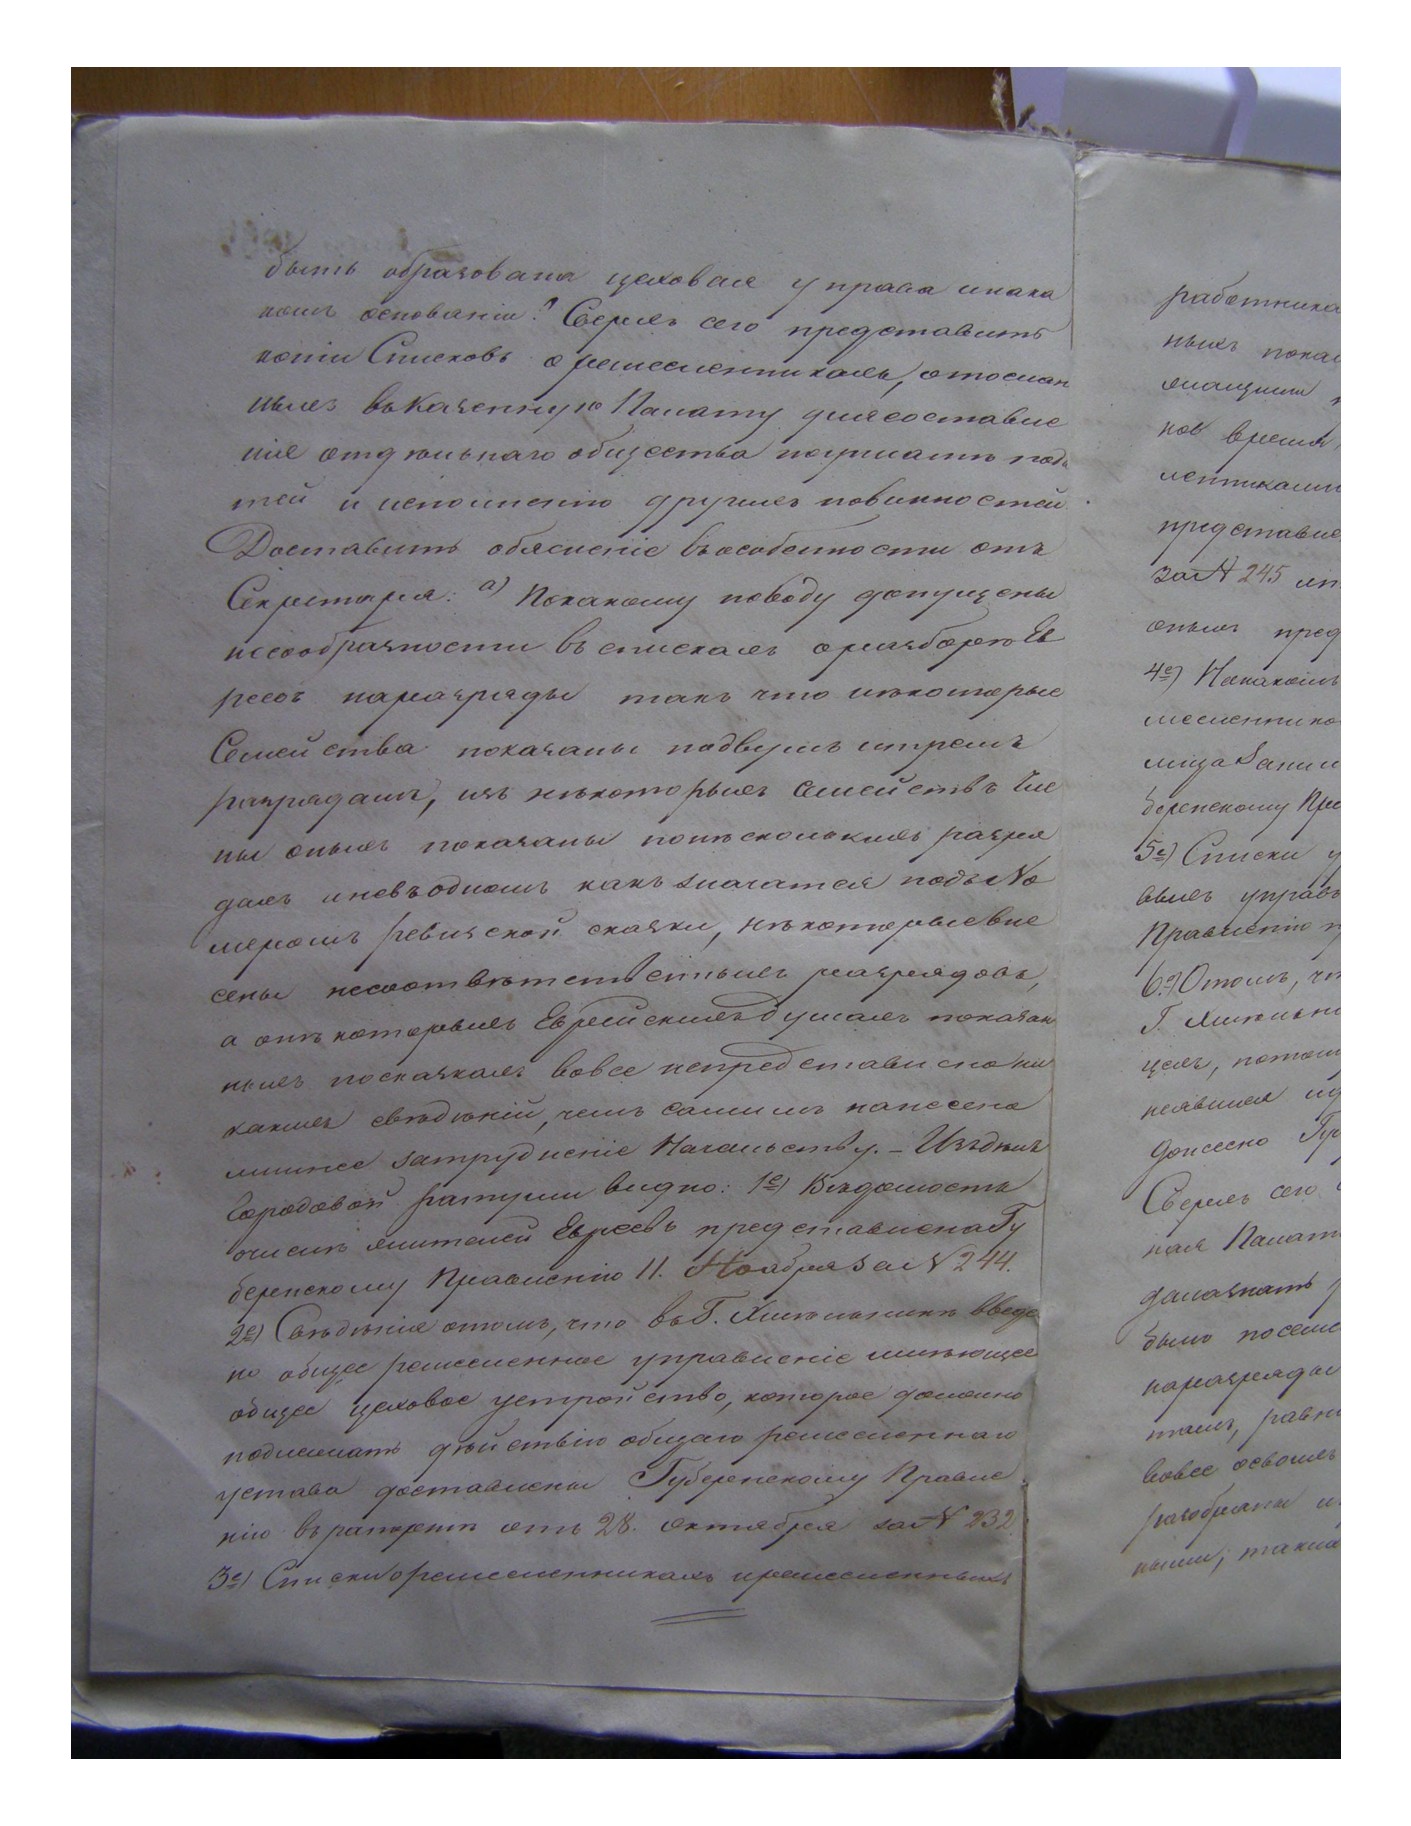 быть образована цеховая управа и на ка
комъ основаніи? Сверхъ сего представить
копіи Списковъ о ремесленникахъ, отослан
ныхъ въ Казенную Палату для составле
нія отдѣльнаго общества по уплатѣ пода
тей и исполненію другихъ повинностей
Доставить объясненіе въ особенности отъ
Секретаря: а) По какому поводу допущены
несообразности въ спискахъ о разборѣ Ев
реевъ на разряды такъ что нѣкоторые
Семейства показаны по двумъ и тремъ
разрядамъ, изъ нѣкоторыхъ Семействъ Чле
ны оныхъ показаны по нѣсколькихъ разря
дахъ и не въ одномъ какъ значатся подъ No
меромъ ревизской сказки, нѣкоторые вне
сены не соотвѣтственныхъ разрядовъ,
а отъ которыхъ Еврейскихъ думахъ показан
ныхъ по сказкахъ вовсе не представлено ни
какихъ свѣдѣній, чемъ самимъ нанесено
лишнее затрудненіе Начальству. – Изъ дѣлъ
Городовой ратуши видно: 1е) Вѣдомость
о числѣ жителей Евреевъ представлена Гу
бернскому Правленію 11. Ноября за № 244.
2е) Свѣдѣнія о томъ, что въ Г. Хмѣльникѣ введе
но общее ремесленное управленіе имѣющее
общее цеховое устройство, которое должно
подлежать дѣйствію общаго ремесленнаго
устава доставлены Губернскому Правле
нію въ рапортѣ отъ 28. октября за № 232
3е) Списки о ремесленникахъ и ремесленныхъ
работника
ныхъ показ
ное время,
представле
за № 245
оныхъ пред
4е) На какомъ
бернскому Пра
5е) Списки у
выхъ управъ
Правленію
6е) О томъ, чт
Г. Хмѣльни
цехъ, потому
неявился
донесено Гу
Сверхъ сего
ная Палат
было
на разряды
вовсе
разобраны
ными, такія